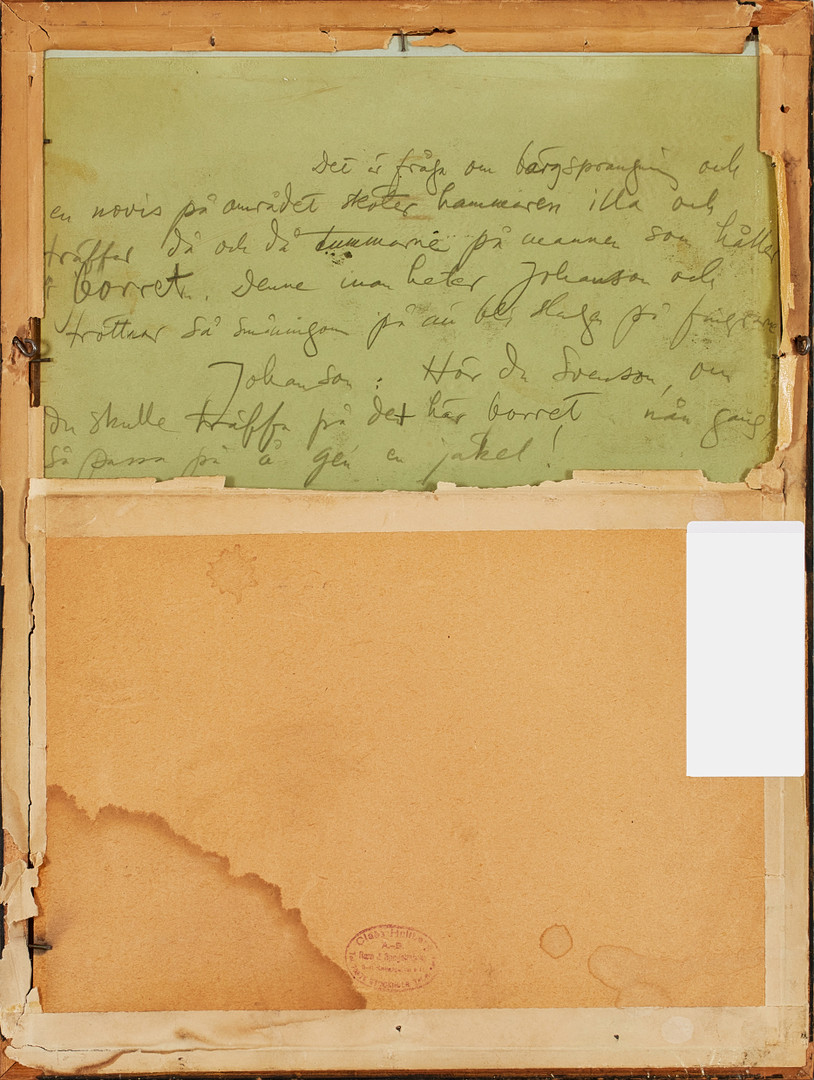 Det är fråga om bärgsprängning och
en novis på området sköter hammaren illa och
träffar då och då tummarne på mannen som håller
i borret. Denne man heter Johanson och
tröttnar så småningom på att bli slagen på fingrarne
Johanson: Hör du Svenson, om
du skulle träffa på det här borret nån gång,
så passa på å ge'n en jäkel!
A.-B.